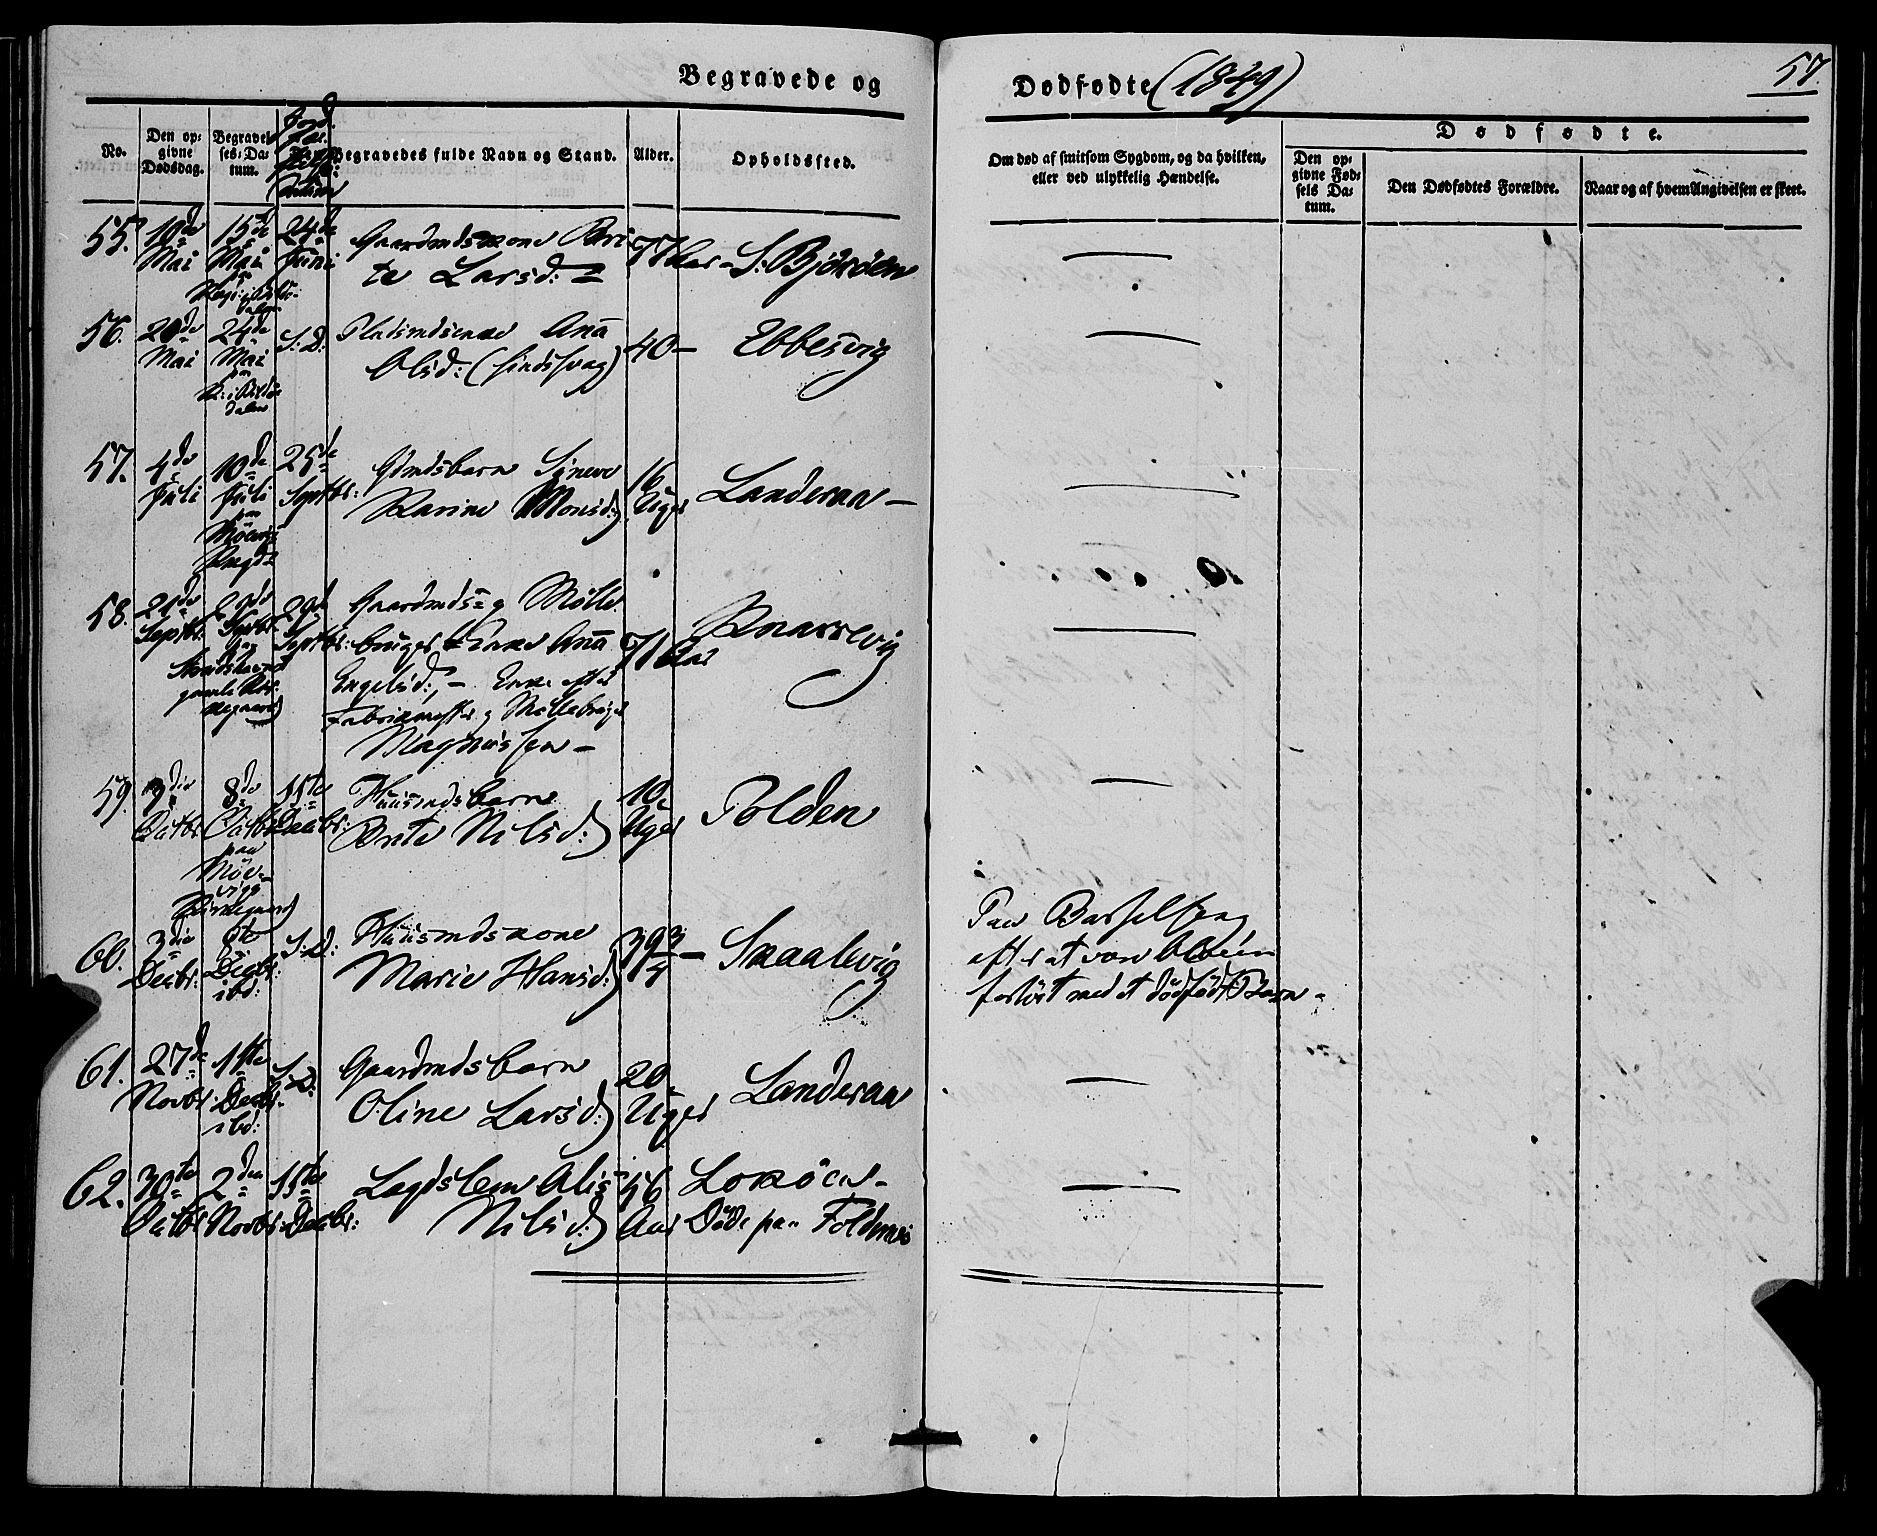 Begravede og Dødfødte (1849) 57
No. Den opgivne Dødsdag. Begravelses-Datum. Begravedes fulde Navn og Stand. Alder. Opholdssted. Om død af smitsom Sygdom, og da hvilken, eller ved ulykkelig Hændelse.
Dødfødte.
Den opgivne Fødsels Datum. Den Dødfødtes Forældre. Naar og af hvem Angivelsen er skeet.
55. 10de Mai 15de Mai 24de Juni Gaardmdskone Bri
te Larsd: 77 Aar - S. Björöen
56. 20de Mai 24de Mai S: D: Pladsmdsenke Anna
Olsd: (sindssvag) 40 - Ebbesvig
57. 4de Juli 10de Juli 25de Septbr: Gdmdsbarn Synneve
Karine Monsd:) 16 Uger Landeraa -
58. 21de Septbr. Septbr. 29de Septbr: Gaardmds= og Mølle
bruger Enke Anna
Engelsd:, - Enke efter
Fabrikmester og Møllebruger
Magnussen - 71 Aar Knarrevig
59. 3die Octbr. 8de Octbr. 15te Decbr: Huusmdsbarn
Brite Nilsd:) 10 Uger Polden
paa
Kirkegaard)
60. 3die Decbr: 8de Decbr: ibd: S. D: Huusmdskone
Marie Hansd:) 39 3/4 - Skaalevig
Paa Barselseng
efter at være bleven
forløst med et dödfödt Barn -
61. 27de Novbr. 1ste Decbr. ibd: S. D: Gaardmdsbarn
Oline Larsd:) 20 Uger Landeraa
62. 30te Octbr. 2den Novbr: 15te Decbr: Lægdslem Alis
Nilsd:) 56 Aar Loköen -
Döde paa Foldnæs